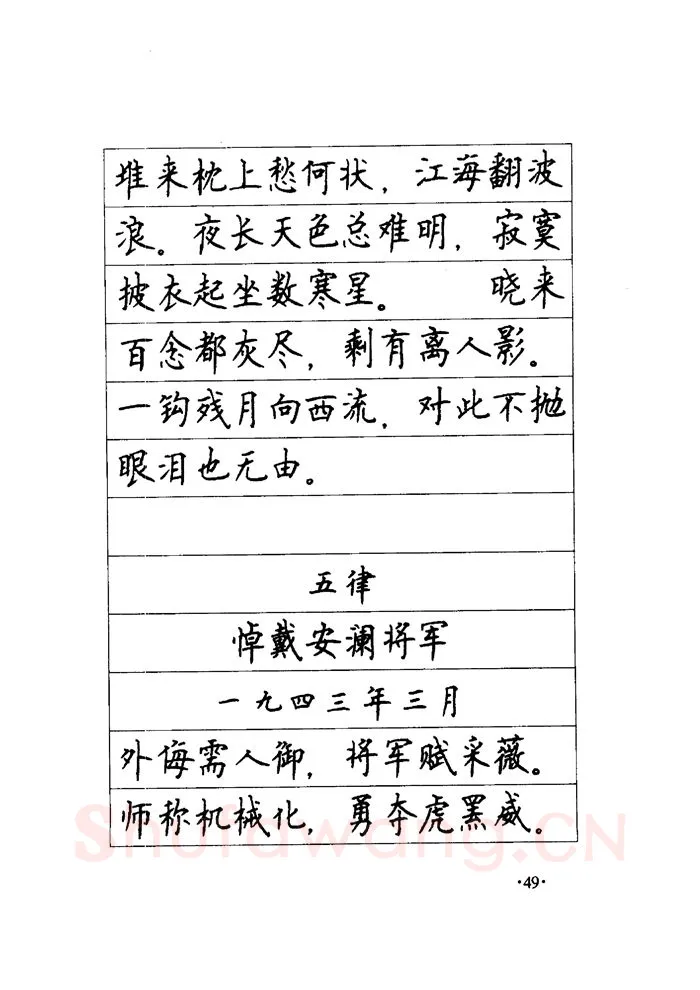 堆来枕上愁何状，江海翻波
浪。夜长天色总难明，寂寞
披衣起坐数寒星。　　晓来
百念都灰尽，剩有离人影。
一钩残月向西流，对此不抛
眼泪也无由。
五律
悼戴安澜将军
一九四三年三月
外侮需人御，将军赋采薇。
师称机械化，勇夺虎罴威。
Shufawang.CN
·49·